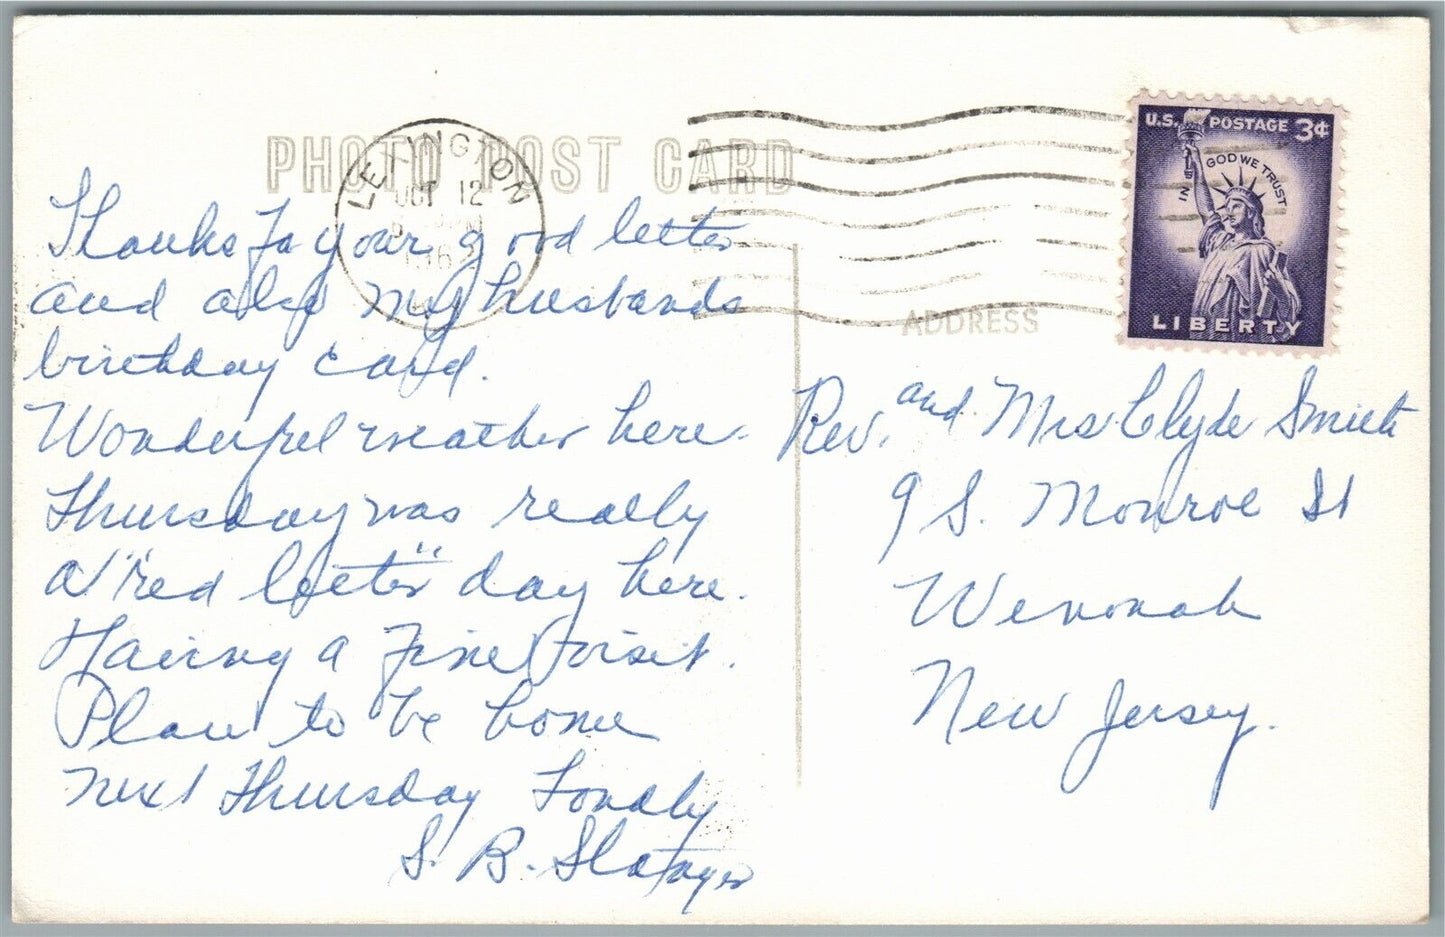 PHOTO POST CARD
LEXINGTON
OCT 12
U.S. POSTAGE 3¢
IN GOD WE TRUST
LIBERTY
Thanks for your good letter
and also my husbands
birthday card.
Wonderful weather here.
Thursday was really
a "red letter" day here.
Having a fine visit.
Plan to be home
next Thursday Fondly
S. B.
ADDRESS
Rev. and Mrs Clyde Smith
9 S. Monroe St
Wenonah
New Jersey.